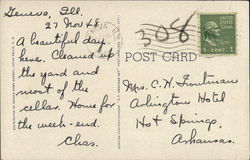 Geneva, Ill.
27 Nov 48
A beautiful day
here. Cleaned up
the yard and
most of the
cellar. Home for
the week-end.
Chas.
308
1 CENT 1
POST CARD
Mrs. C. H. Troutman
Arlington Hotel
Hot Springs,
Arkansas.